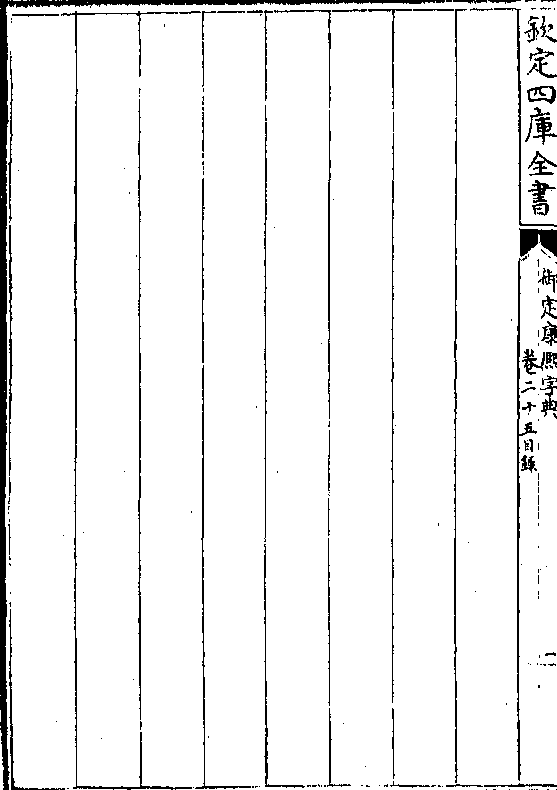 欽定四庫全書
御定康熙字典
卷二十五目録
一